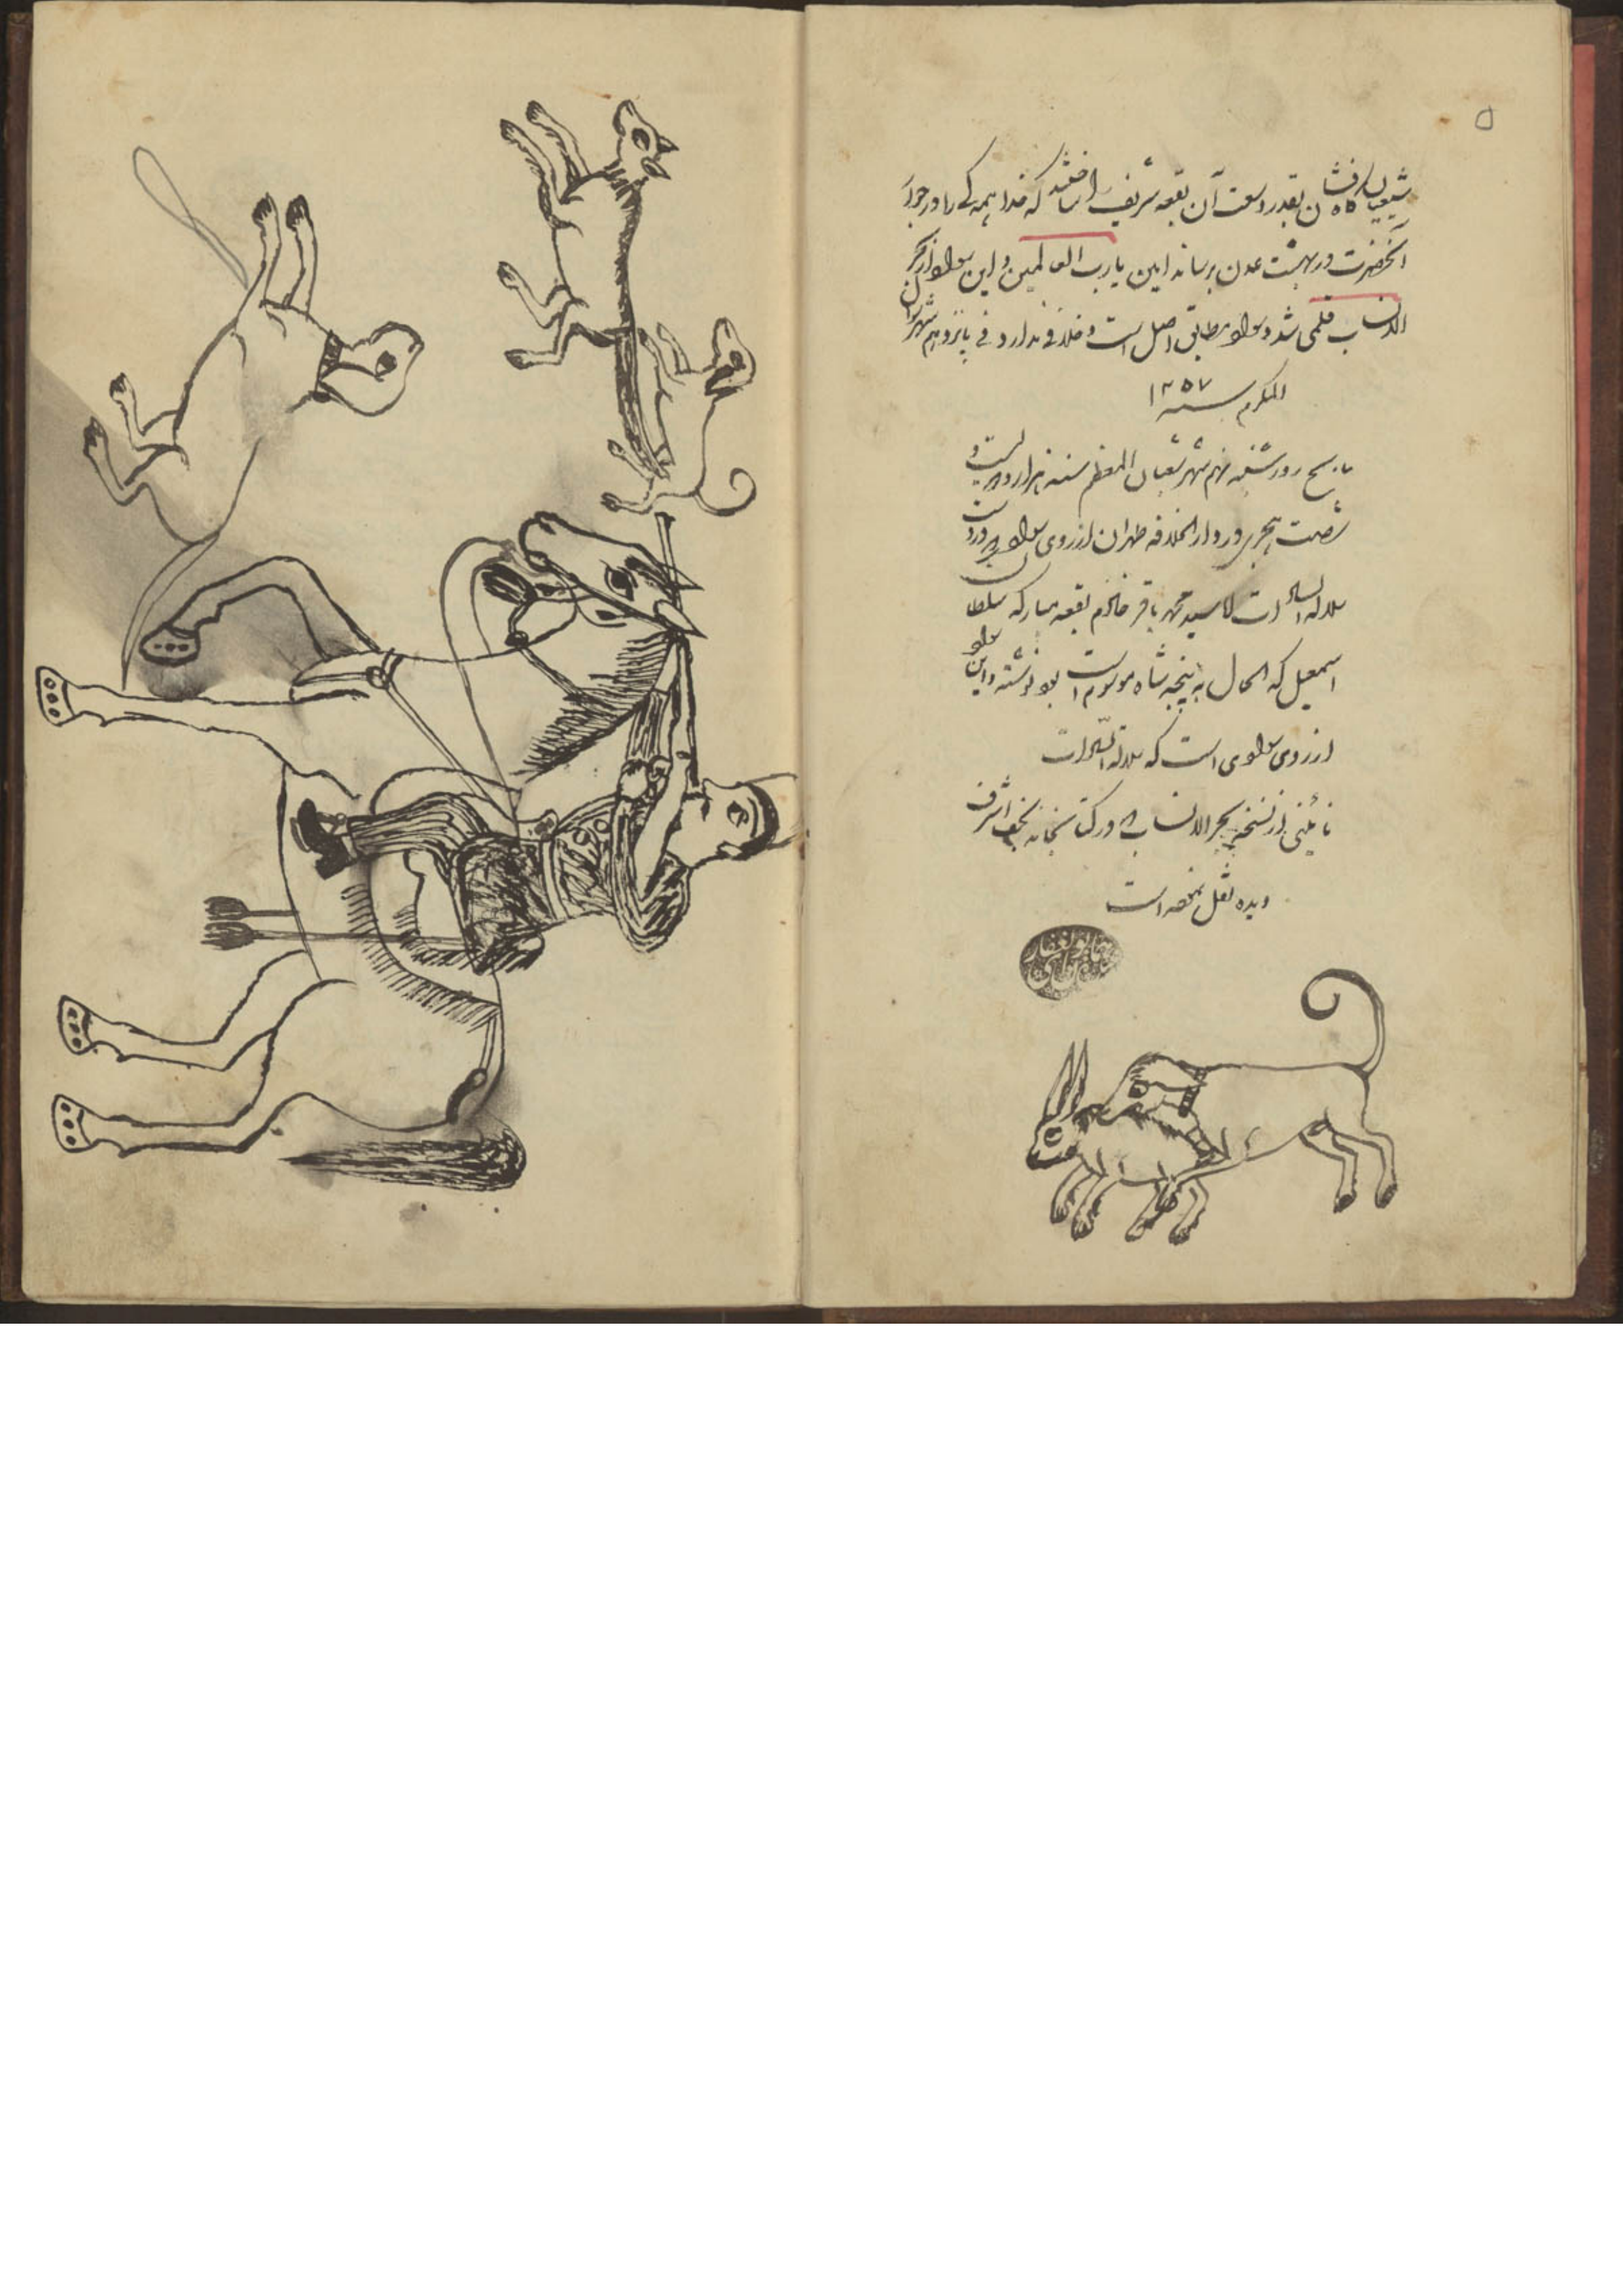 ۵
شیعیان کاشان بقدر وسعت آن بقعه شریف را ساختند که خدا همه کی را در جوار
آنحضرت در بهشت عدن برساند امین یا رب العالمین و این سواد از بحر
الانساب قلمی شد و سواد مطابق اصل است و خلافی ندارد فی پانزدهم شهر شوال
المکرم سنه ۱۲۵۷
بتاریخ روز شنبه نهم شهر شعبان المعظم سنه هزار و دویست و
شصت هجری در دار الخلافه طهران از روی سواد
محمد باقر خادم بقعه مبارکه سلطان
اسمعیل که الحال به پنجه شاه موسوم است بود نوشته و این سواد
از روی سوادی است که سلالة السادات
نائینی از نسخه بحر الانساب که در کتابخانه نجف اشرف
دیده نقل نموده است